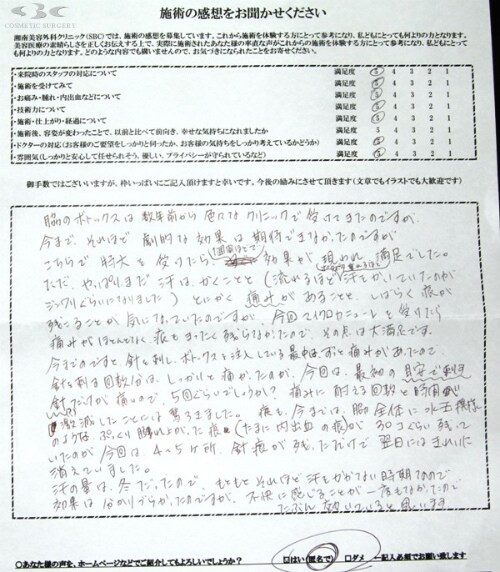 COSMETIC SURGERY
施術の感想をお聞かせください
湘南美容外科クリニック(SBC)では、施術の感想を募集しています。これから施術を体験する方にとって参考になり、私どもにとって何よりの力となります。
美容医療の素晴らしさを正しくお伝えする上で、実際に施術されたあなた様の率直な声がこれからの施術を体験する方にとって参考になり、私どもにとっても何よりの力となります。どのような内容でも構いませんので、お気づきになられたことをお寄せください。
・来院時のスタッフの対応について 満足度 5 4 3 2 1
・施術を受けてみて 満足度 5 4 3 2 1
・お痛み・腫れ・内出血などについて 満足度 5 4 3 2 1
・技術力について 満足度 5 4 3 2 1
・施術・仕上がり・経過について 満足度 5 4 3 2 1
・施術後、容姿が変わったことで、以前と比べて前向き、幸せな気持ちになれましたか 満足度 5 4 3 2 1
・ドクターの対応(お客様のご要望をしっかりと伺ったか、お客様の気持ちをしっかり考えているかどうか) 満足度 5 4 3 2 1
・雰囲気(しっかりと安心して任せられそう、優しい、プライバシーが守られているなど) 満足度 5 4 3 2 1
御手数ではございますが、枠いっぱいにご記入頂けますと幸いです。今後の励みにさせて頂きます(文章でもイラストでも大歓迎です)
脇のボトックスは数年前から色々なクリニックで受けてきたのですが
今まで、それほど劇的な効果は期待できなかったのですが
こちらで特大を受けたら1回目ほどで効果が現われ満足でした。
ただ、やっぱりまだ汗はかくことと(流れるほど汗をかいていたのが
ジックリぐらいになりました)とにかく痛みがあること、しばらく痕が
残こることが気になっていたのですが、今回マイクロカニューレを受けたら
痛みがほとんどなく、痕もまったく残らなかったので、その点は大満足です。
今までのですと、針を刺し、ボトックスを注入している最中は、ずっと痛みがあったので、
針を刺す回数分は、しっかりと痛かったのが、今回は、最初の目安で刺す
針だけが痛いので、5回ぐらいでしょうか?痛みに耐える回数と時間が
激減したことには驚ろきました。痕も、今までは、脇の全体に水玉模様
のような、ぷっくり腫れ上がった痕(たまに内出血の痕)が30コぐらい残って
いたのが今回は4～5ヶ所、針痕が残っただけで翌日にはきれいに
消えていました。
汗の量は、冬だったので、もともとそれほど汗をかかない時期なので
効果は分かりづらかったのですが、不快に感じることが一度もなかったので
たぶん効いていると思います
○あなた様の声を、ホームページなどでご紹介してもよろしいでしょうか? □はい(匿名で) □ダメ ←記入必須でお願い致します